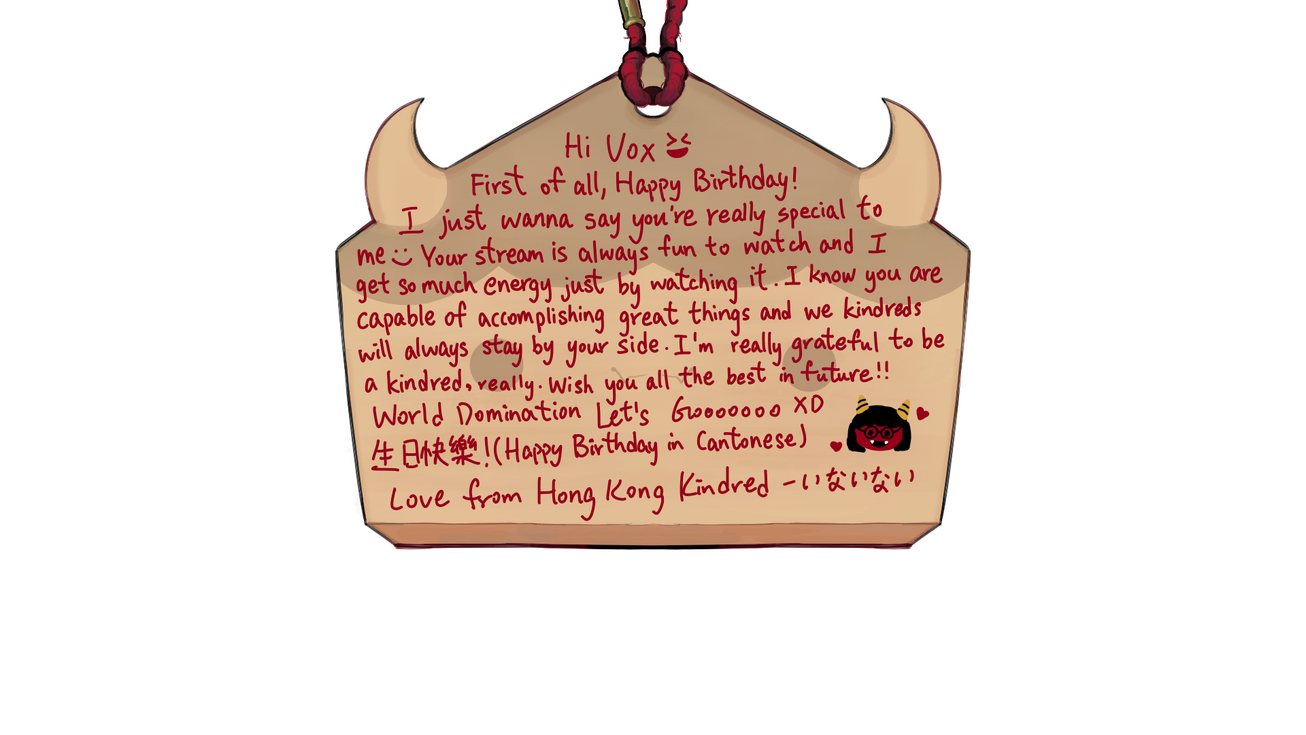 Hi Vox
First of all, Happy Birthday!
I just wanna say you're really special to
me Your stream is always fun to watch and I
get so much energy just by watching it. I know you are
capable of accomplishing great things and we kindreds
will always stay by your side. I'm really grateful to be
a kindred, really. Wish you all the best in future!!
World Domination Let's Gooooooo XD
生日快樂!(Happy Birthday in Cantonese)
Love from Hong Kong Kindred -いないない